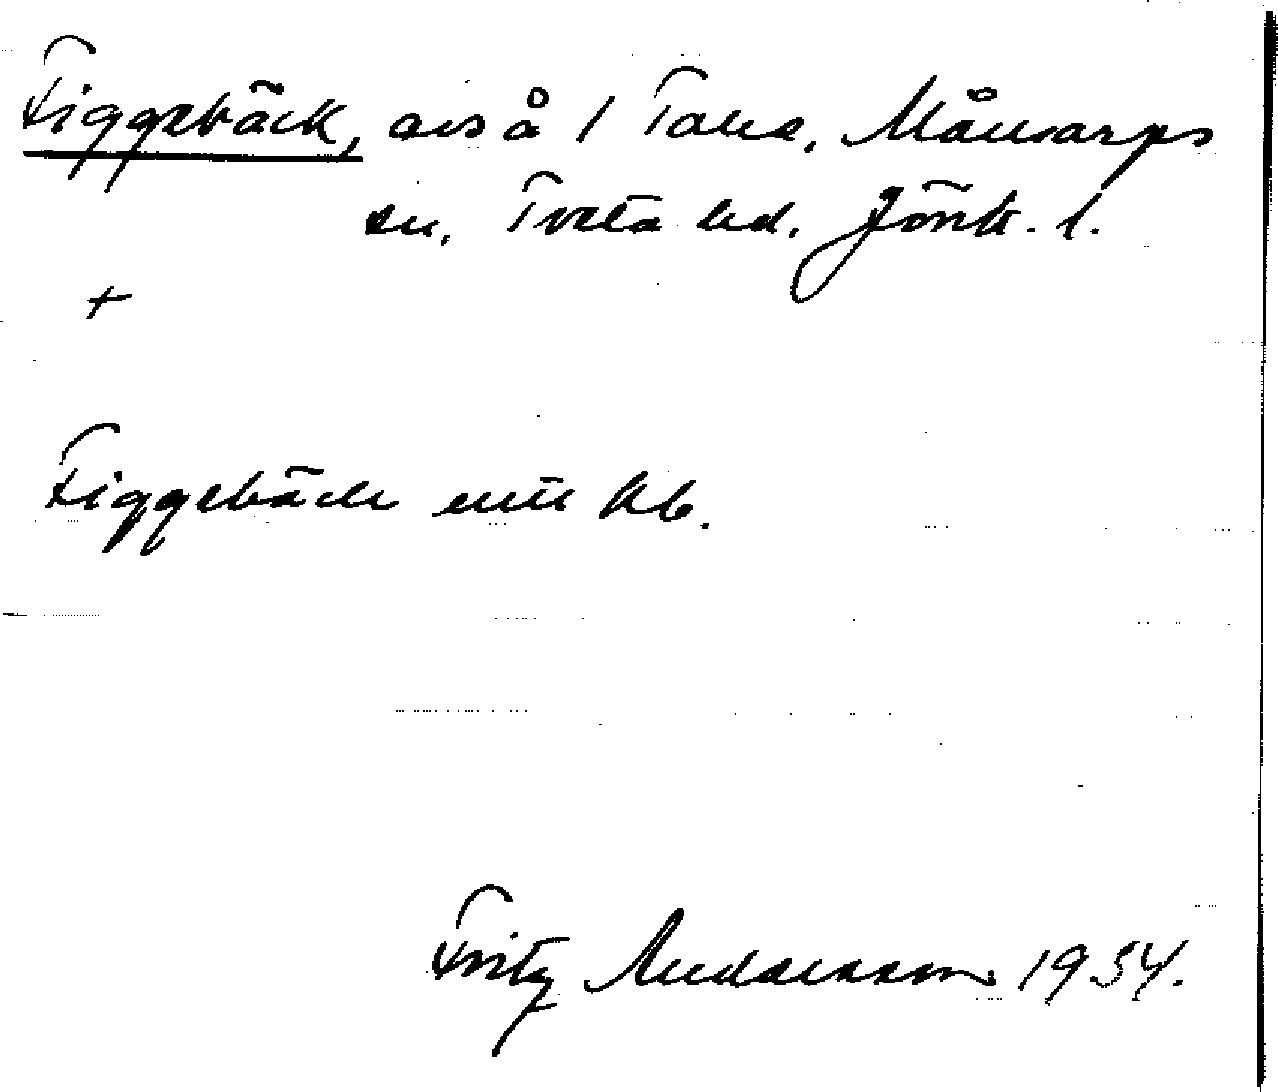 Figgebäck, avs å 1 Tahe, Månsarps
sn, Tveta hd. Jönk. l.
+
Figgebäck enl Kb.
Fritz Andersson 1934.